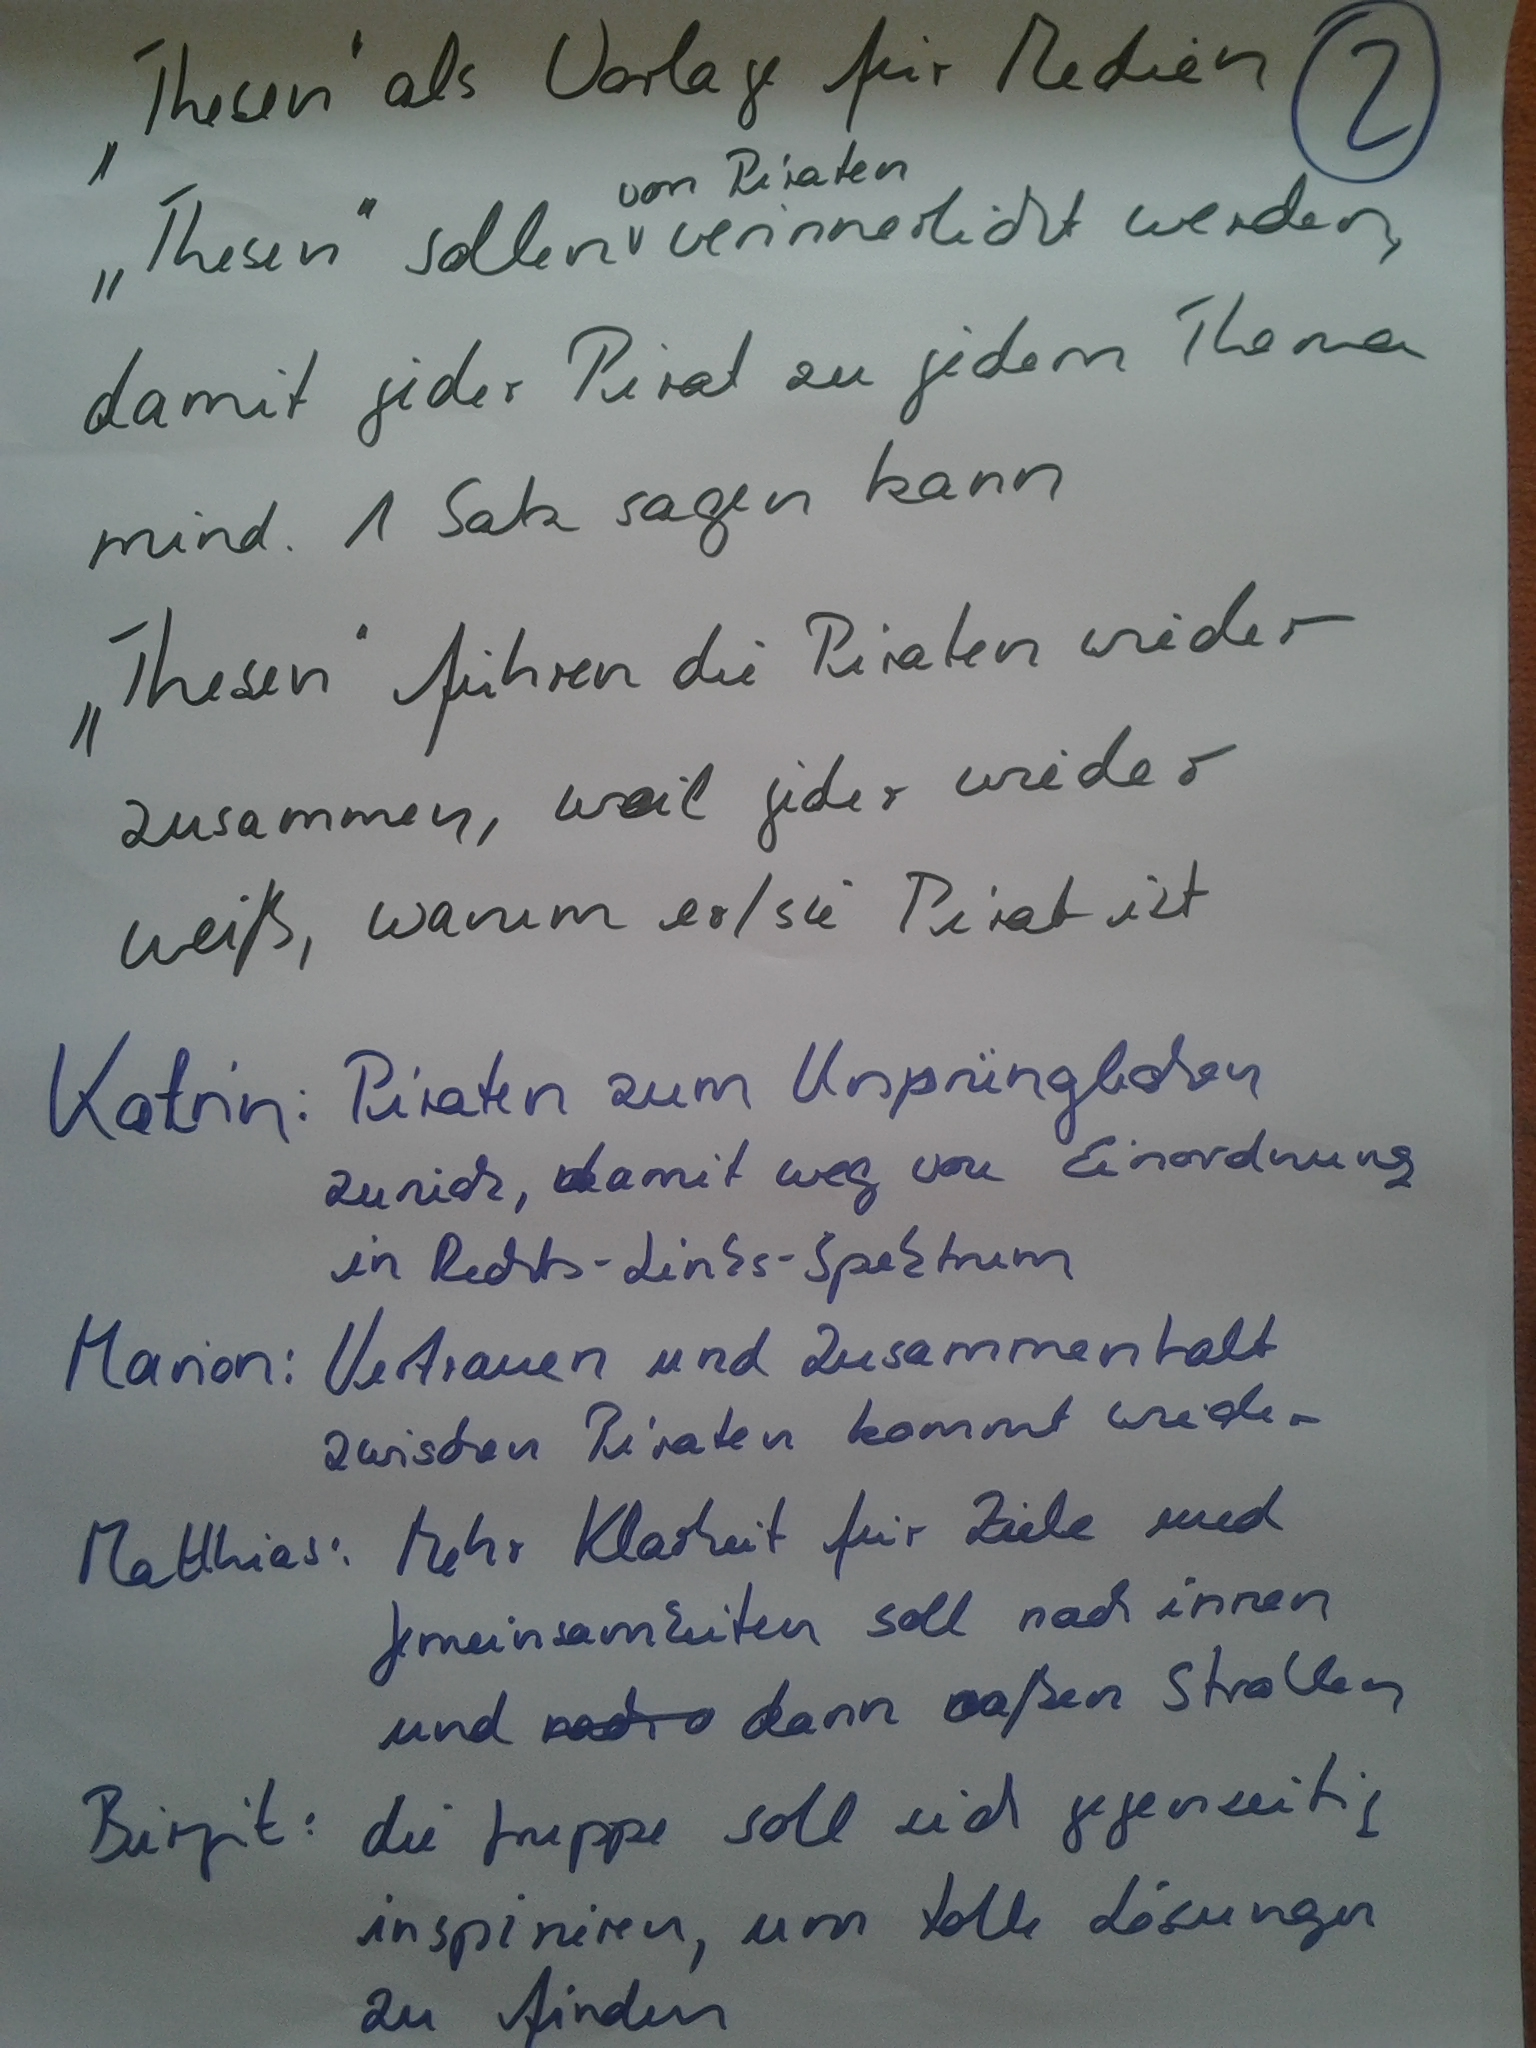 „Thesen" als Vorlage für Medien 2
von Piraten
„Thesen" sollen verinnerlicht werden,
damit jeder Pirat zu jedem Thema
mind. 1 Satz sagen kann
„Thesen" führen die Piraten wieder
zusammen, weil jeder wieder
weiß, warum er/sie Pirat ist
Katrin: Piraten zum Ursprünglichen
zurück, damit weg von Einordnung
in Rechts-Links-Spektrum
Marion: Vertrauen und Zusammenhalt
zwischen Piraten kommt wieder
Matthias: Mehr Klarheit für Ziele und
Gemeinsamkeiten soll nach innen
und dann außen Strahlen
Birgit: die Gruppe soll sich gegenseitig
inspirieren, um tolle Lösungen
zu finden